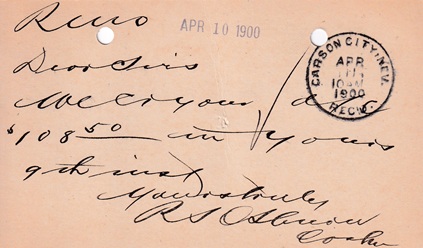 Reno
APR 10 1900
Dear Sirs
We Cr your
$108 50 in yours
9th inst
Yours truly
Cashr
CARSON CITY, NEV.
APR
10 AM
1900
REC'D.